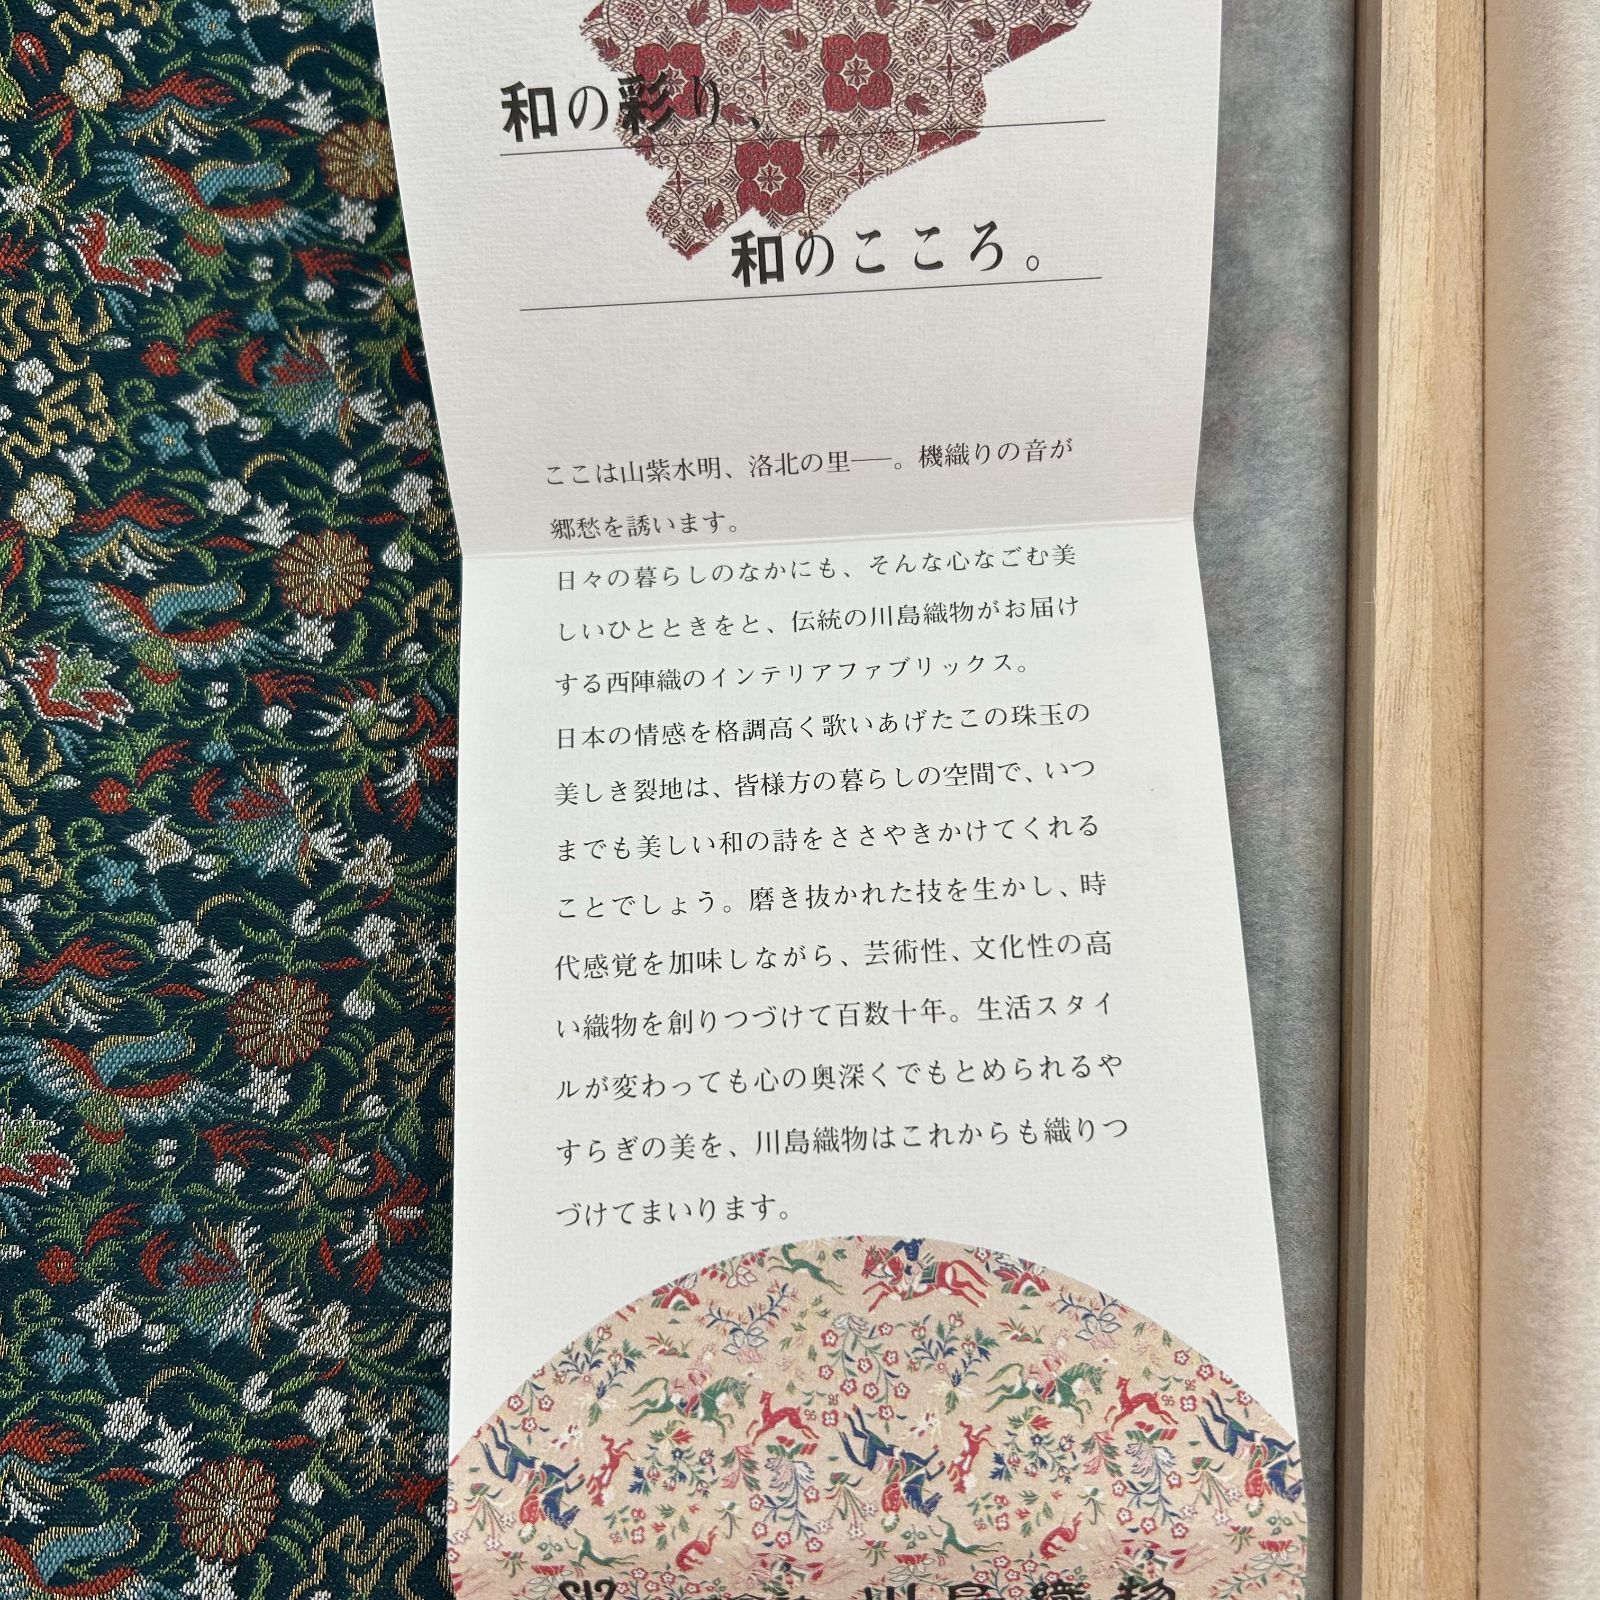 和の彩り、
和のこころ。
ここは山紫水明、洛北の里──。機織りの音が
郷愁を誘います。
日々の暮らしのなかにも、そんな心なごむ美
しいひとときをと、伝統の川島織物がお届け
する西陣織のインテリアファブリックス。
日本の情感を格調高く歌いあげたこの珠玉の
美しき裂地は、皆様方の暮らしの空間で、いつ
までも美しい和の詩をささやきかけてくれる
ことでしょう。磨き抜かれた技を生かし、時
代感覚を加味しながら、芸術性、文化性の高
い織物を創りつづけて百数十年。生活スタイ
ルが変わっても心の奥深くでもとめられるや
すらぎの美を、川島織物はこれからも織りつ
づけてまいります。
川島織物